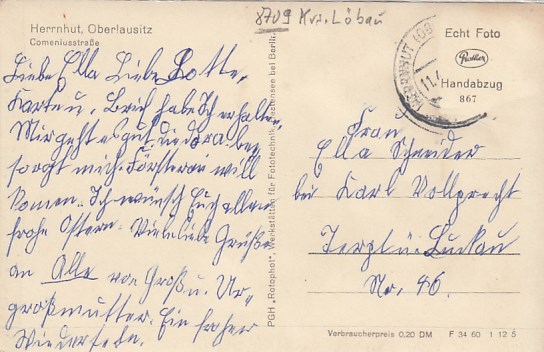 Herrnhut, Oberlausitz
Comeniusstraße
8709 Krs. Löbau
Liebe Ella Liebe Lotte,
Karte u. Brief habe Ich erhalten,
Mir geht es gut,
sorgt mich. Försterei will
komen. Ich wünsch Euch allen
frohe Ostern. Viele liebe Grüße
an Alle von Groß u. Ur-
großmutter. Ein froher
Wiedersehn.
PGH „Rotophot", Werkstätten für Fototechnik, Bestensee bei Berlin
HERRNHUT (OB
11.4
Echt Foto
Handabzug
867
Frau
Ella Schneider
bei Karl Vollprecht
Terpt ü. Luckau
Nr. 46.
Verbraucherpreis 0,20 DM F 34 60 1 12 5